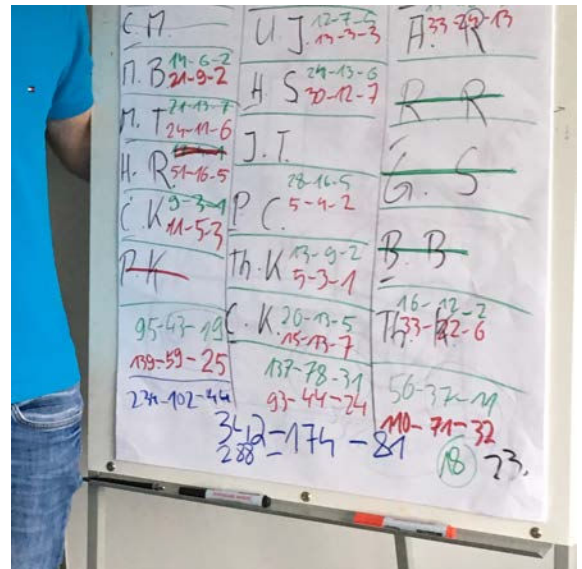 C. M.
M. B 14-6-2
21-9-2
M. T 21-13-7
24-11-6
H. R. 51-16-5
C. K 9-3-1
11-5-3
P. K
95-43-19
139-59-25
234-102-44
U. J. 12-7-5
13-3-3
H. S 24-13-6
30-12-7
J. T.
P. C. 28-16-5
5-4-2
Th. K 13-9-2
5-3-1
C. K. 20-13-5
15-13-7
137-78-31
93-44-24
A. R
R R
G. S
B. B
16-12-2
Th. 33-22-6
56-37-11
110-71-32
342-174-81
288
18 23.